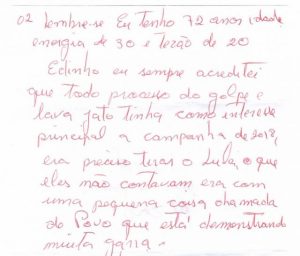 02 lembre-se Eu tenho 72 anos idade
energia de 30 e tezão de 20
Edinho eu sempre acreditei
que todo processo do golpe e
lava jato tinha como interesse
principal a campanha de 2018,
era preciso tirar o Lula, o que
eles não contavam era com
uma pequena coisa chamada
de Povo que está demonstrando
muita garra.